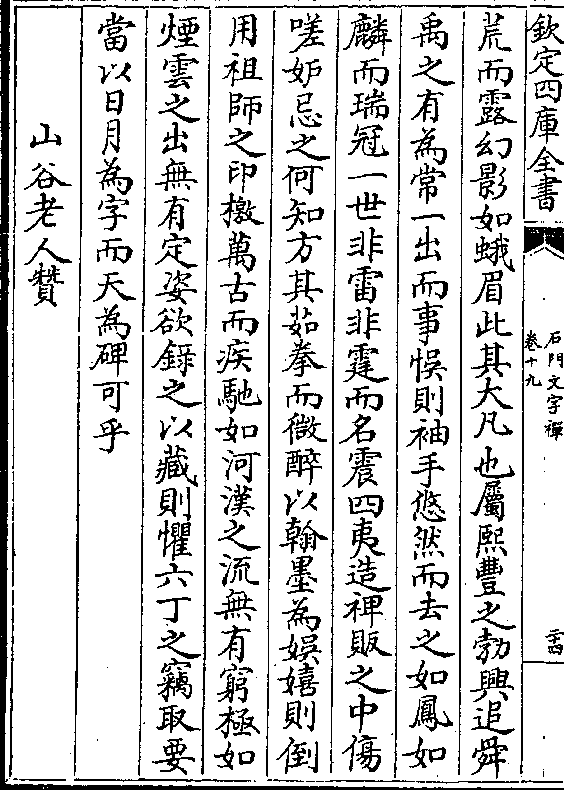 欽定四庫全書
石門文字禪
卷十九
二十四
荒而露幻影如蛾眉此其大凡也屬熙豐之勃興追舜
禹之有為常一出而事悞則袖手悠然而去之如鳳如
麟而瑞冠一世非雷非霆而名震四夷造裨販之中傷
嗟妒忌之何知方其茹拳而微醉以翰墨為娛嬉則倒
用祖師之印檄萬古而疾馳如河漢之流無有窮極如
煙雲之出無有定姿欲錄之以藏則懼六丁之竊取要
當以日月為字而天為碑可乎
山谷老人贊